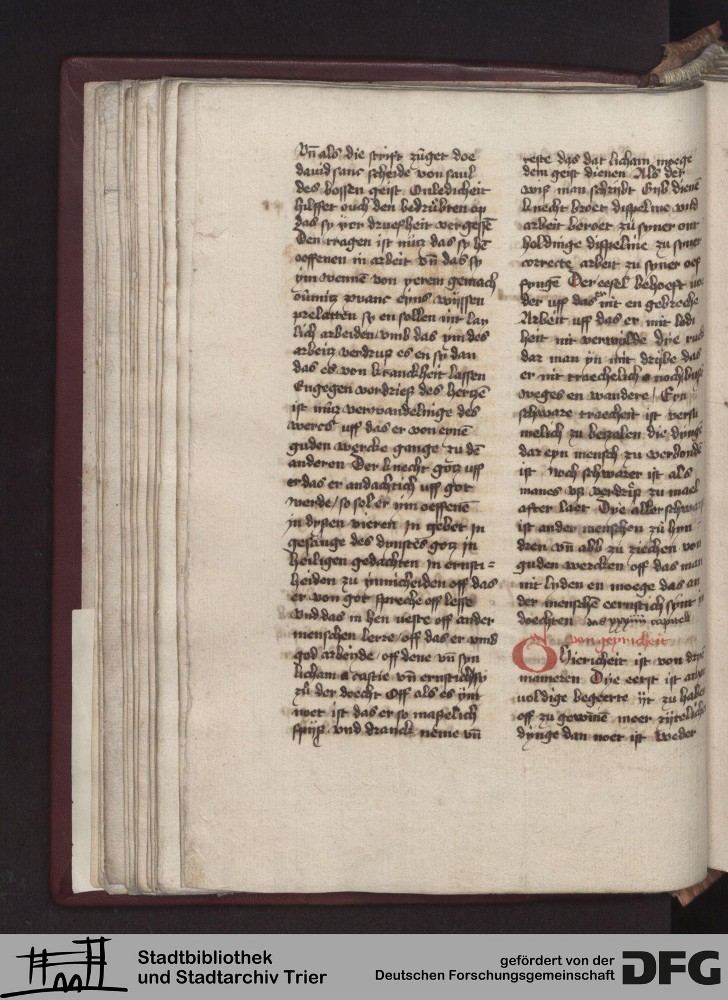 vn̄ als die scrift zůget doe
dauid sanc scheide von saul
des bossen geist Onledicheit
hilffet ouch den bedrůbten op
das sy yrer druefheit vergessē
Den tragen ist nůtz das sy hē
ooffenen in arbeit vn̄ das sy
von yerem gemach
prelatten sy en sollen nit
lich arbeiden vmb das ym des
arbeitz verdrutz es en sy dan
das es von kranckheit lassen
Engegen verdriess des hertzē
ist nůtz verwandelinge des
werces uff das er von eynē
guden wercke gange zu dē
anderen Der knecht gotz uff
er das er andachtich uff got
werde / so sol er ym oeffenē
jn dysen vieren jn gebet jn
gesange des dynstes gotz jn
heiligen gedachten jn ernsti=
heiden zu jnnicheiden off das
er von got spreche off lesse
vnd das in hen neste off ander
menschen lerre / off das er vmb
god arbeyde / off dene vn̄ syn
licham castie vn̄ ernstich sy
zů der doecht Off als es ym
noet ist das er so masselich
spijß vnd dranck neme vn̄
reste das dat licham moege
dem geist dienen Als der
wiß man schribt Gyb dienē
knecht broet disspeline vnd
arbeit broet zů syner ont
holdinge disspeline zu syner
correcte arbeit zu syner oef
fyngē Der eesel behoeft
der uff das er nit en gebreche
Arbeit uff das er nit ledi
heit nit verwylde Dye
dar man yn mit dribe das
er nit traechelich noch
weges en wandere / Eyn
schware traecheit ist versu
melich zu betzalen die dynge
dar eyn mensch zu verbondē
ist Noch schwarer ist als
manes vß verdrijß zu mael
after laet Dye aller schwarst
ist ander menschen zů hyn
dren vn̄ abb zu ziechen von
guden wercken off das man
nit lyden en moege das an
der menschē ernstich synt jn
doechten das xxxiiii capittell
von gyricheit
Gyericheit ist von drye
manieren Dye eerst ist
uoldige begeerte ijt zu haben
off zu gewinē meer zijtelicher
dynge dan noet ist Weder
Stadtbibliothek
und Stadtarchiv Trier
gefördert von der
Deutschen Forschungsgemeinschaft
DFG